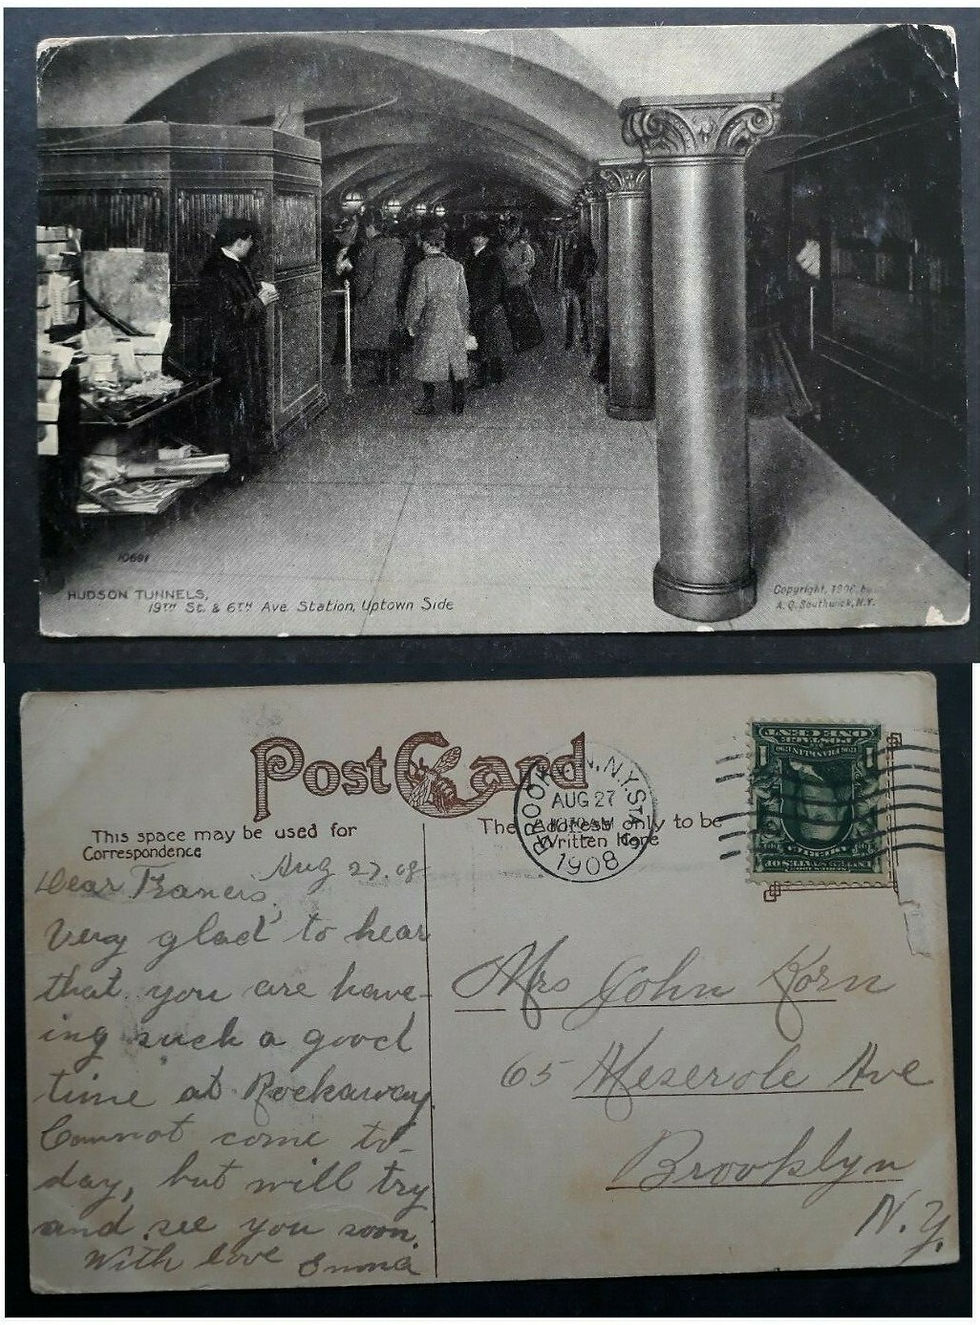 10691
HUDSON TUNNELS,
19TH St. & 6TH Ave. Station, Uptown Side
Copyright, 1908 by
A. Q. Southwick, N.Y.
Post Card
This space may be used for
Correspondence
The Address only to be
Written Here
BROOKLYN, N.Y. STA.
AUG 27
1908
ONE CENT
Aug 27. 08
Dear Francis,
Very glad to hear
that you are have-
ing such a good
time at Rockaway
Cannot come to-
day, but will try
and see you soon.
With love Emma
Mrs John Korn
65 Meserole Ave
Brooklyn
N.Y.